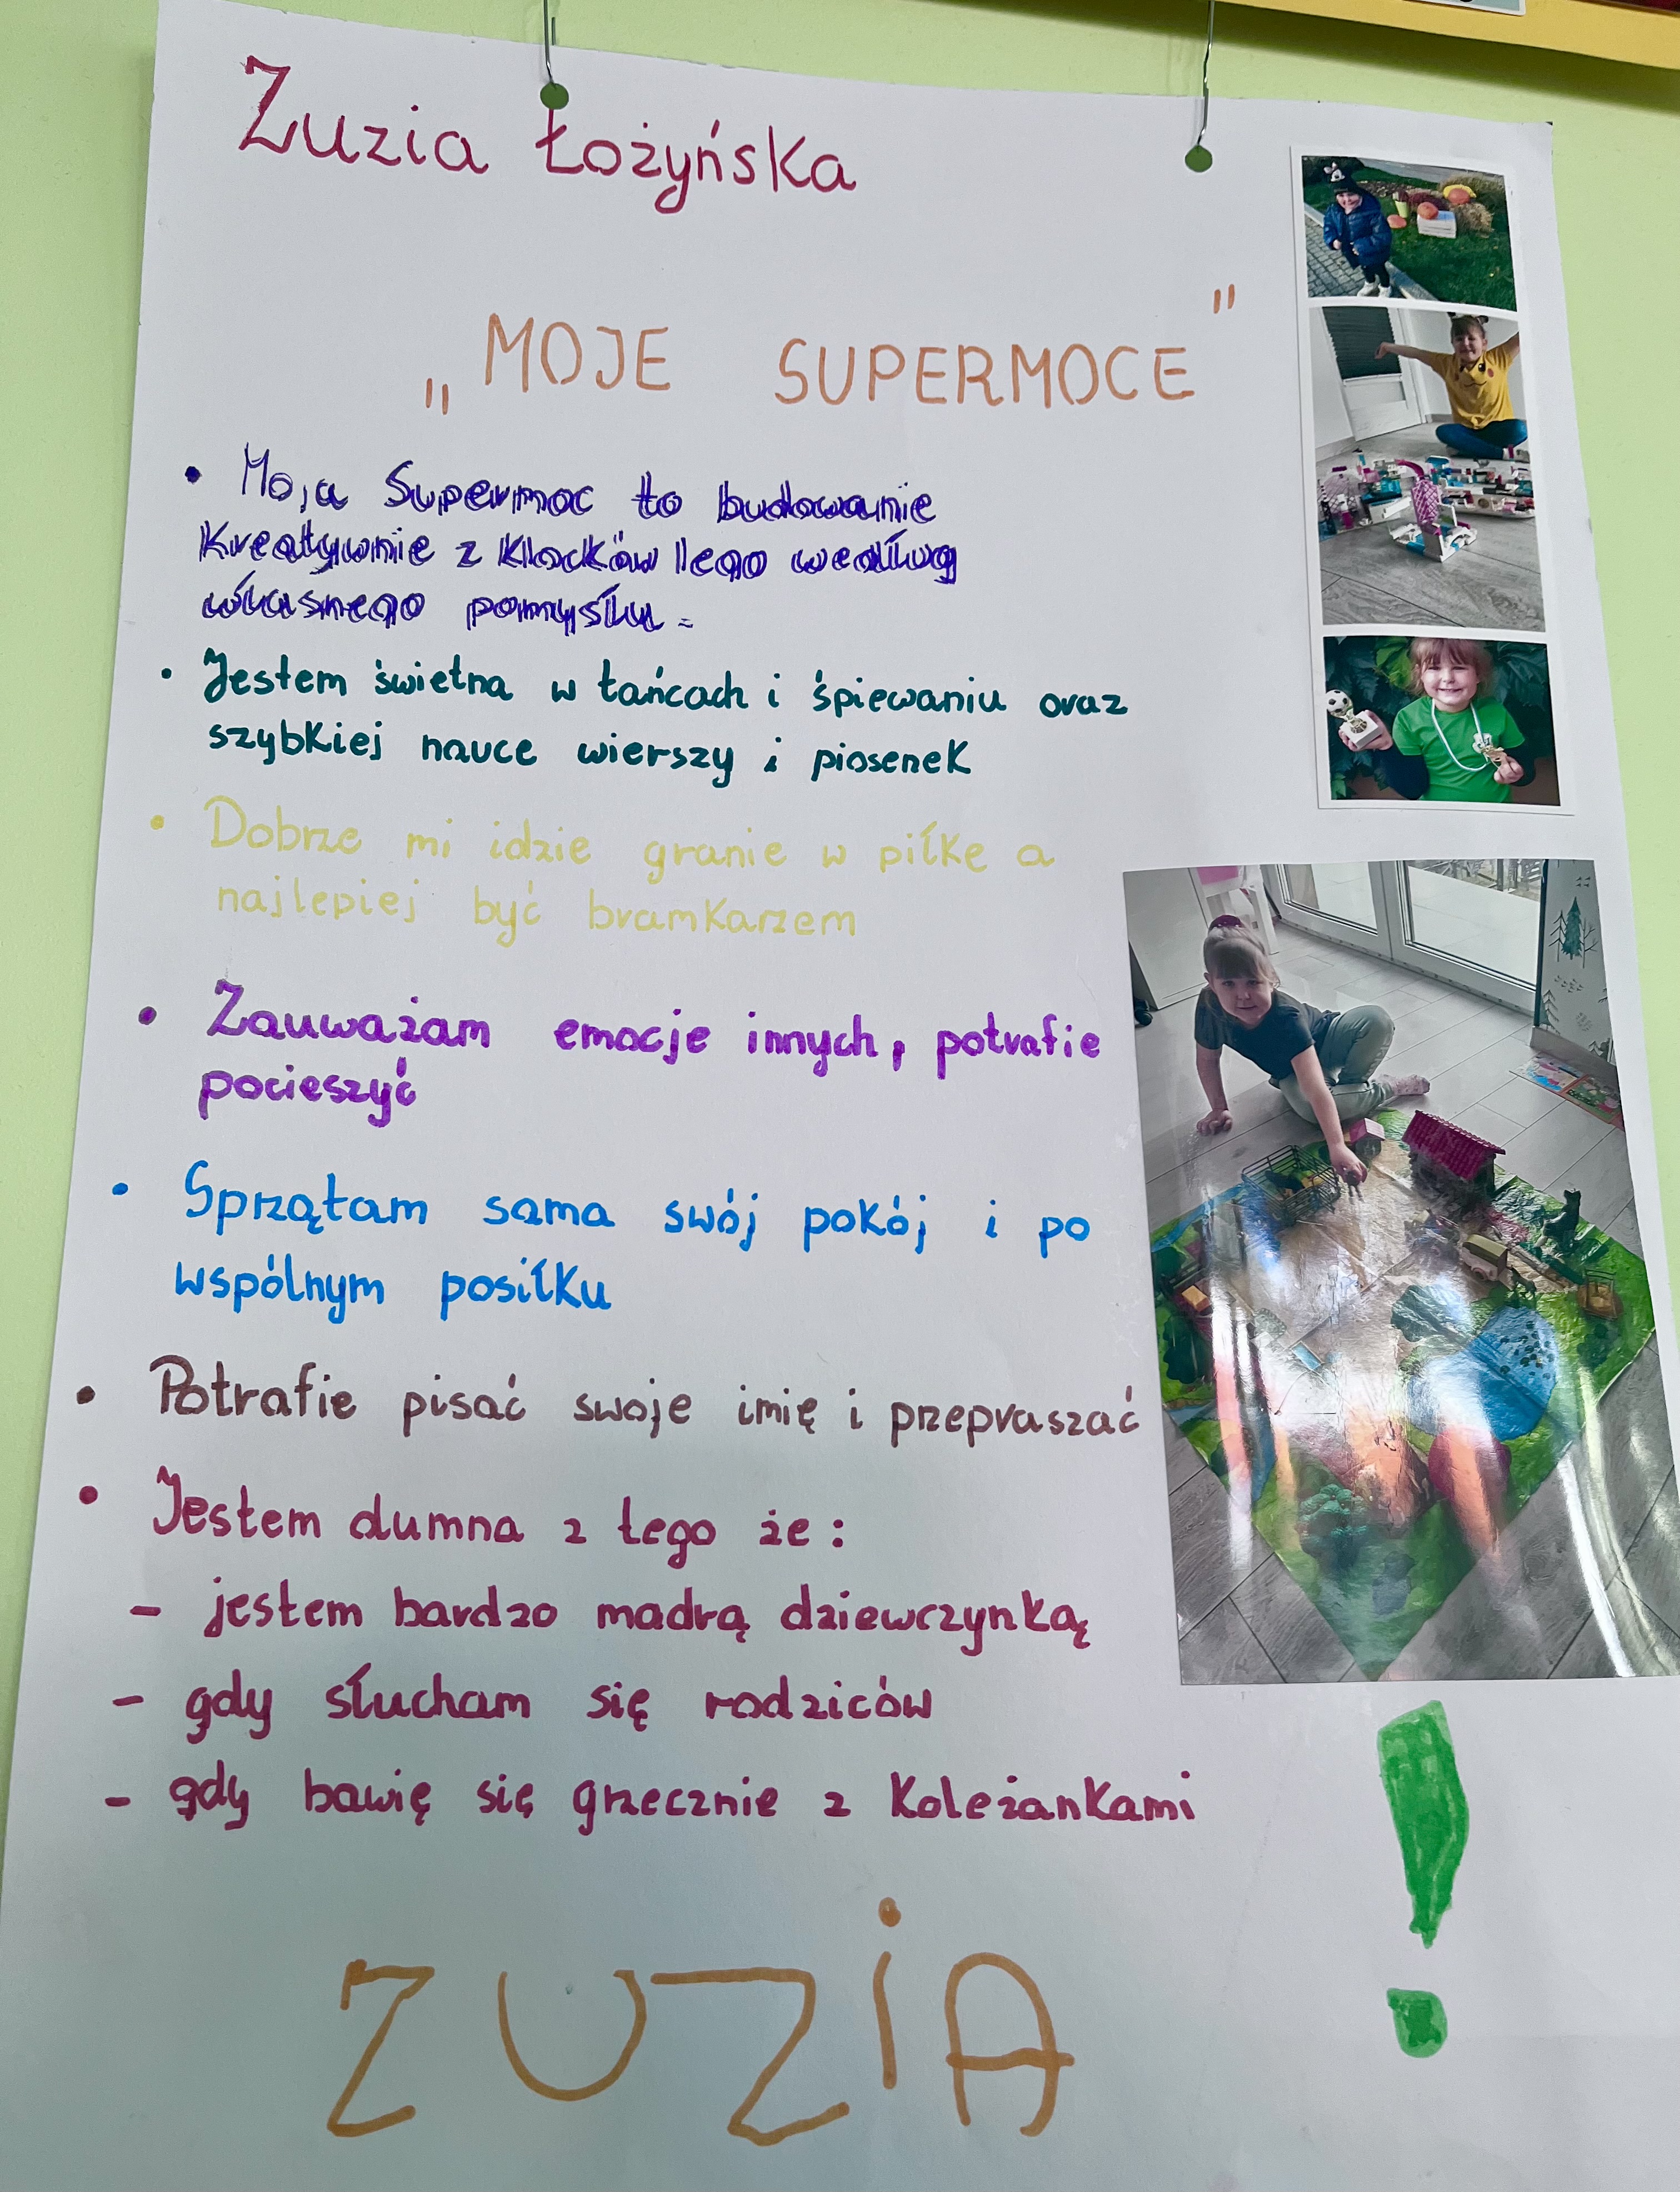 Zuzia Łożyńska
„MOJE SUPERMOCE"
• Moja Supermoc to budowanie
kreatywnie z klocków lego według
własnego pomysłu.
• Jestem świetna w tańcach i śpiewaniu oraz
szybkiej nauce wierszy i piosenek
• Dobrze mi idzie granie w piłkę a
najlepiej być bramkarzem
• Zauważam emocje innych, potrafie
pocieszyć
• Sprzątam sama swój pokój i po
wspólnym posiłku
• Potrafie pisać swoje imię i przepraszać
• Jestem dumna z tego że:
- jestem bardzo madrą dziewczynką
- gdy słucham się rodziców
- gdy bawię się grzecznie z koleżankami
ZUZiA !